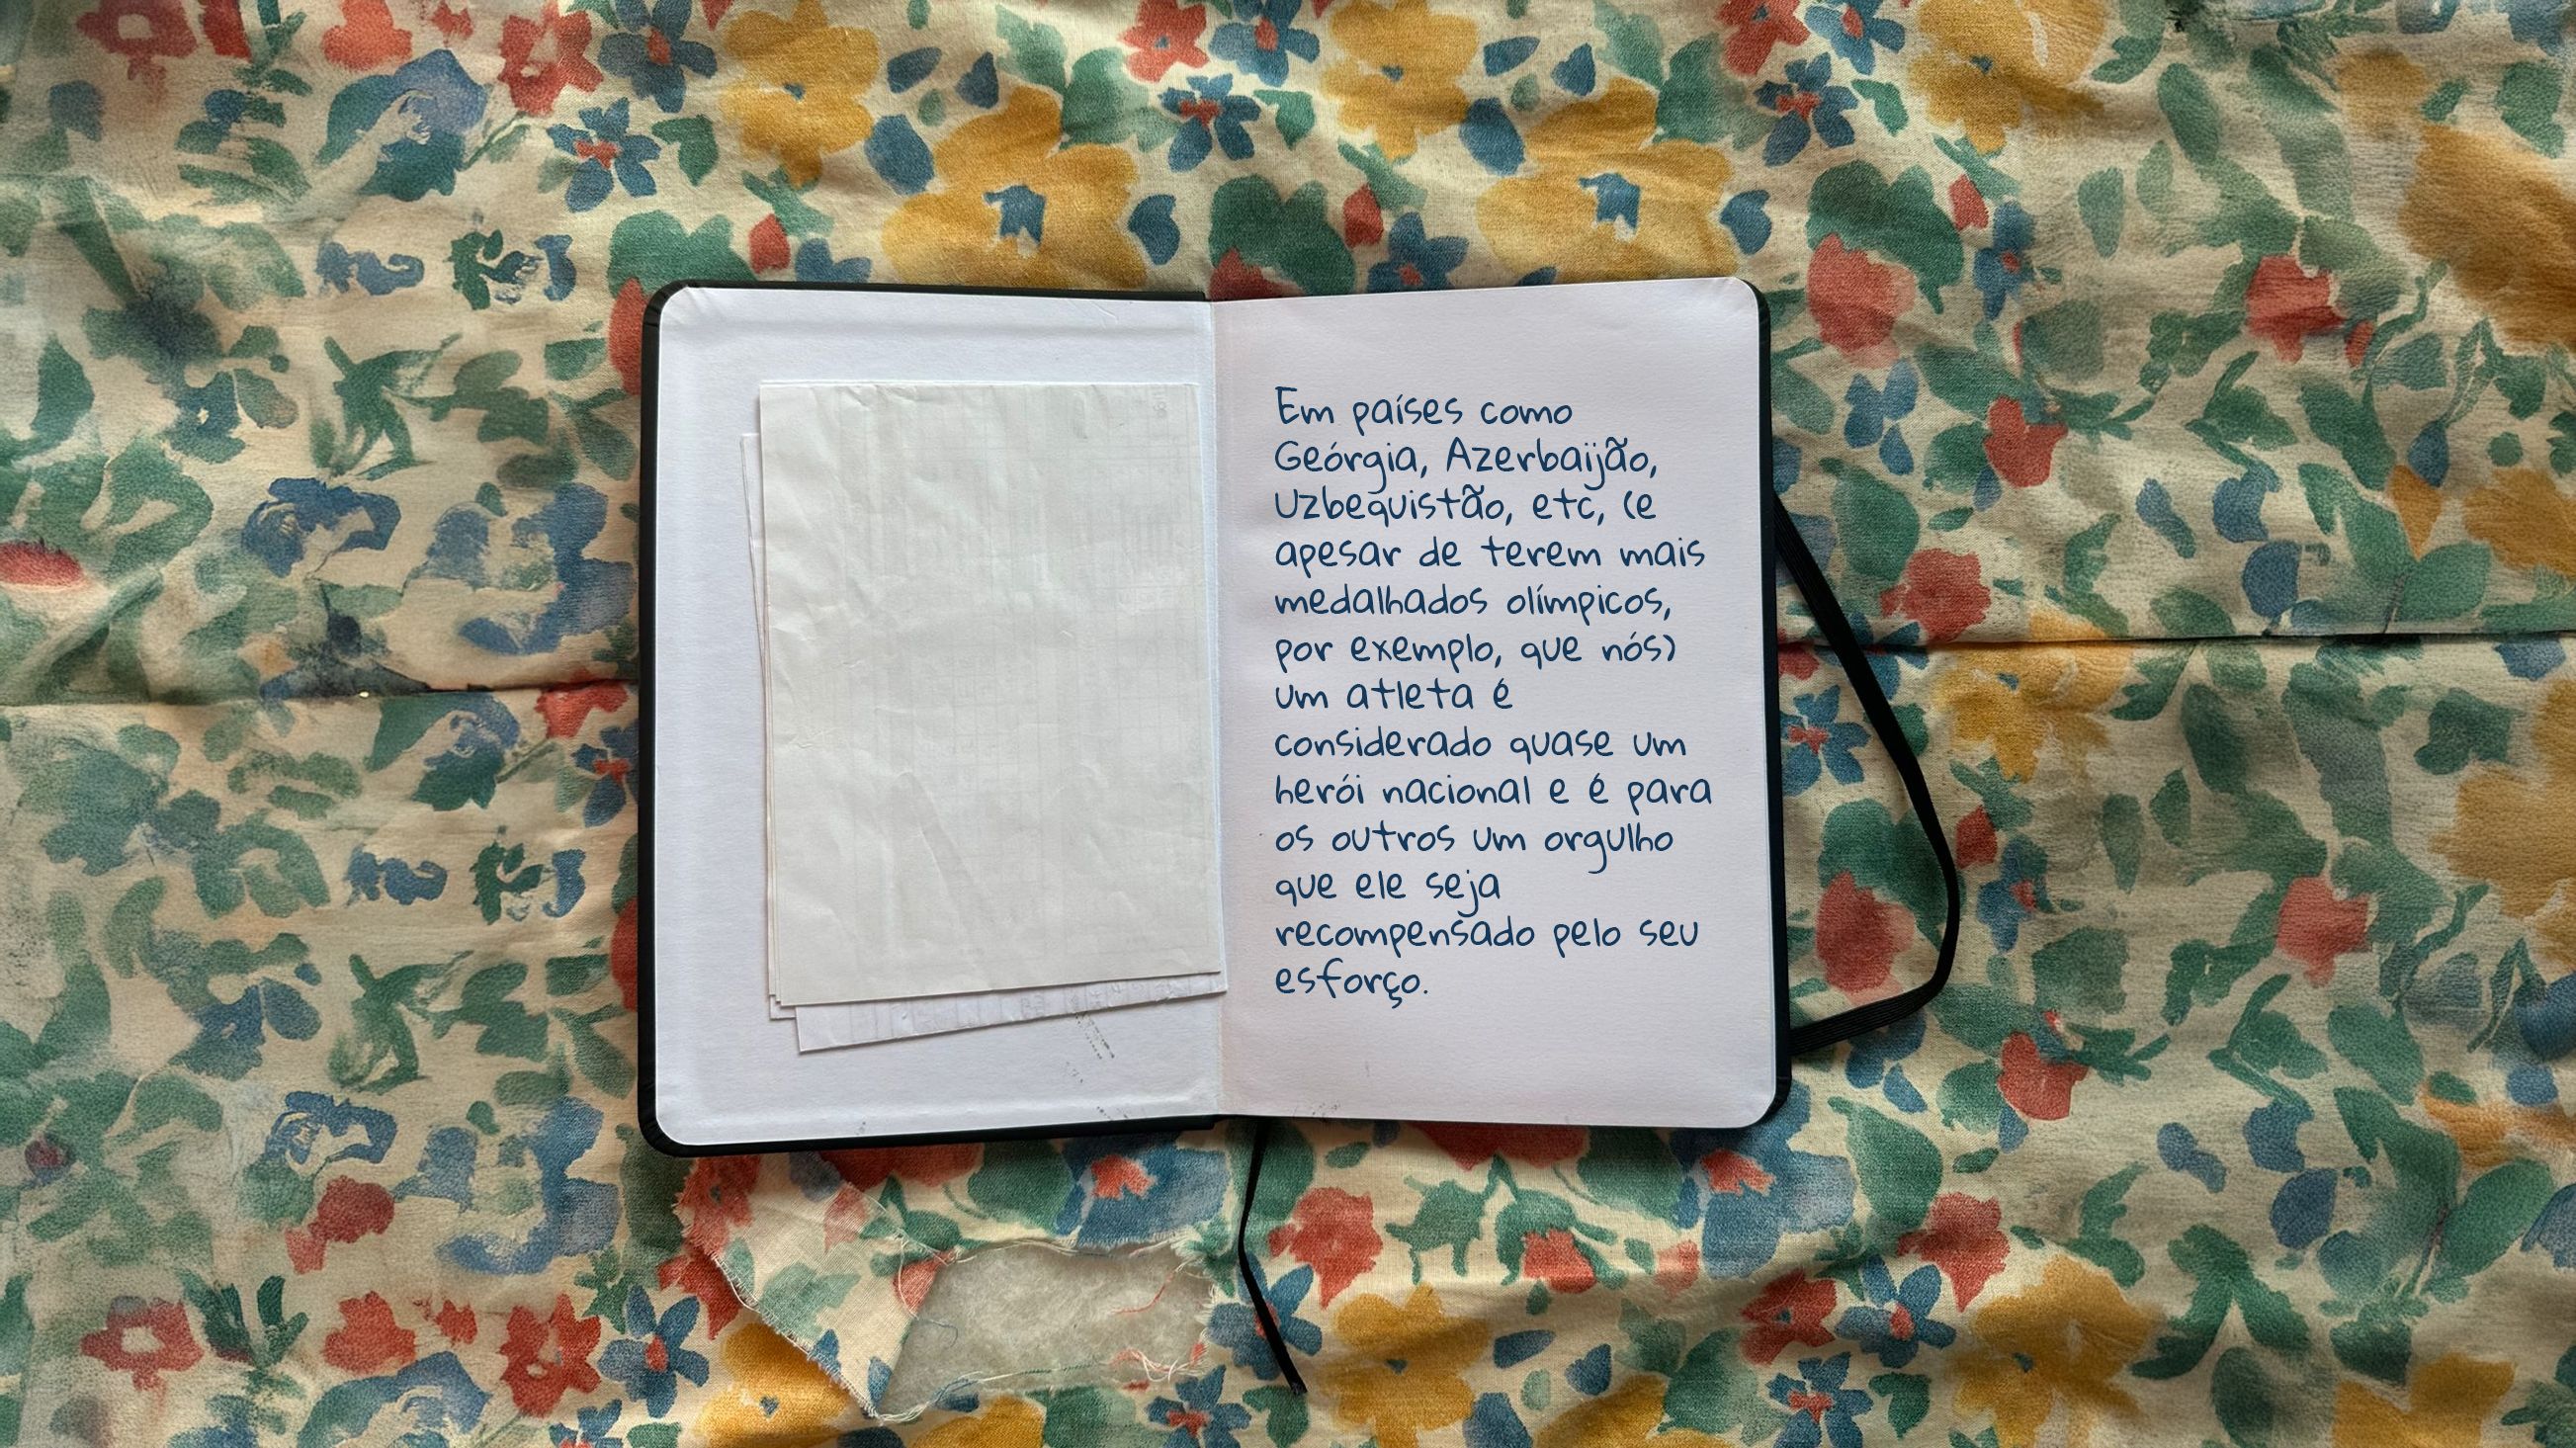 Em países como
Geórgia, Azerbaijão,
Uzbequistão, etc, (e
apesar de terem mais
medalhados olímpicos,
por exemplo, que nós)
um atleta é
considerado quase um
herói nacional e é para
os outros um orgulho
que ele seja
recompensado pelo seu
esforço.